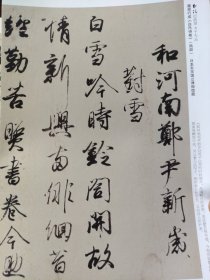 和河南鄭尹新歲
對雪
白雪吟時鈴閣開故
情新興兩徘徊昔
經勤苦照書卷今助